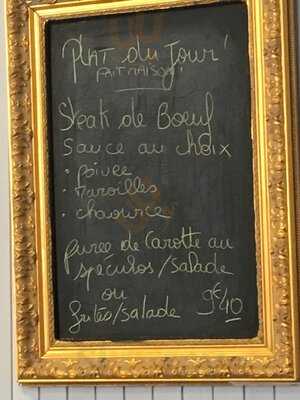 PLAT du Jour'
FAIT MAISON!
Steak de Bœuf
Sauce au choix
• poivre
• Maroilles
• chaource
puree de Carotte au
spéculos/Salade
ou
frites/salade 9€40